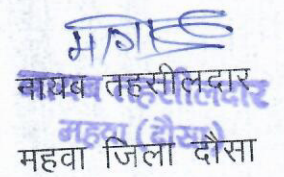 नायब तहसीलदार
नायब तहसीलदार
महवा (दौसा)
महवा जिला दौसा